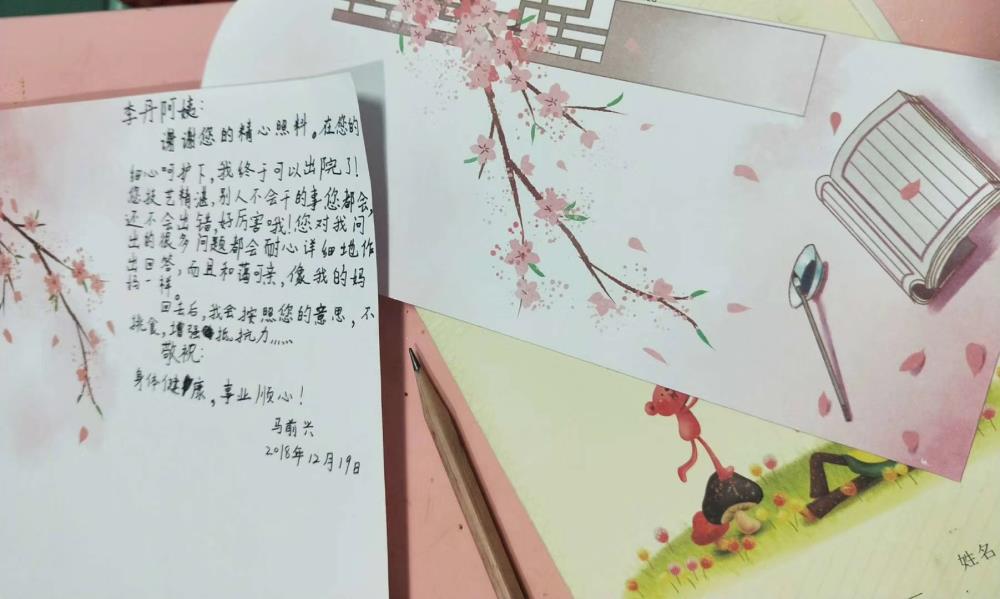 李丹阿姨：
谢谢您的精心照料。在您的
细心呵护下，我终于可以出院了！
您技艺精湛，别人不会干的事您都会，
还不会出错，好厉害哦！您对我问
出的很多问题都会耐心详细地作
出回答，而且和蔼可亲，像我的妈
妈一样。
回去后，我会按照您的意思，不
挑食，增强抵抗力……
敬祝：
身体健康，事业顺心！
马萌兴
2018年12月19日
姓名